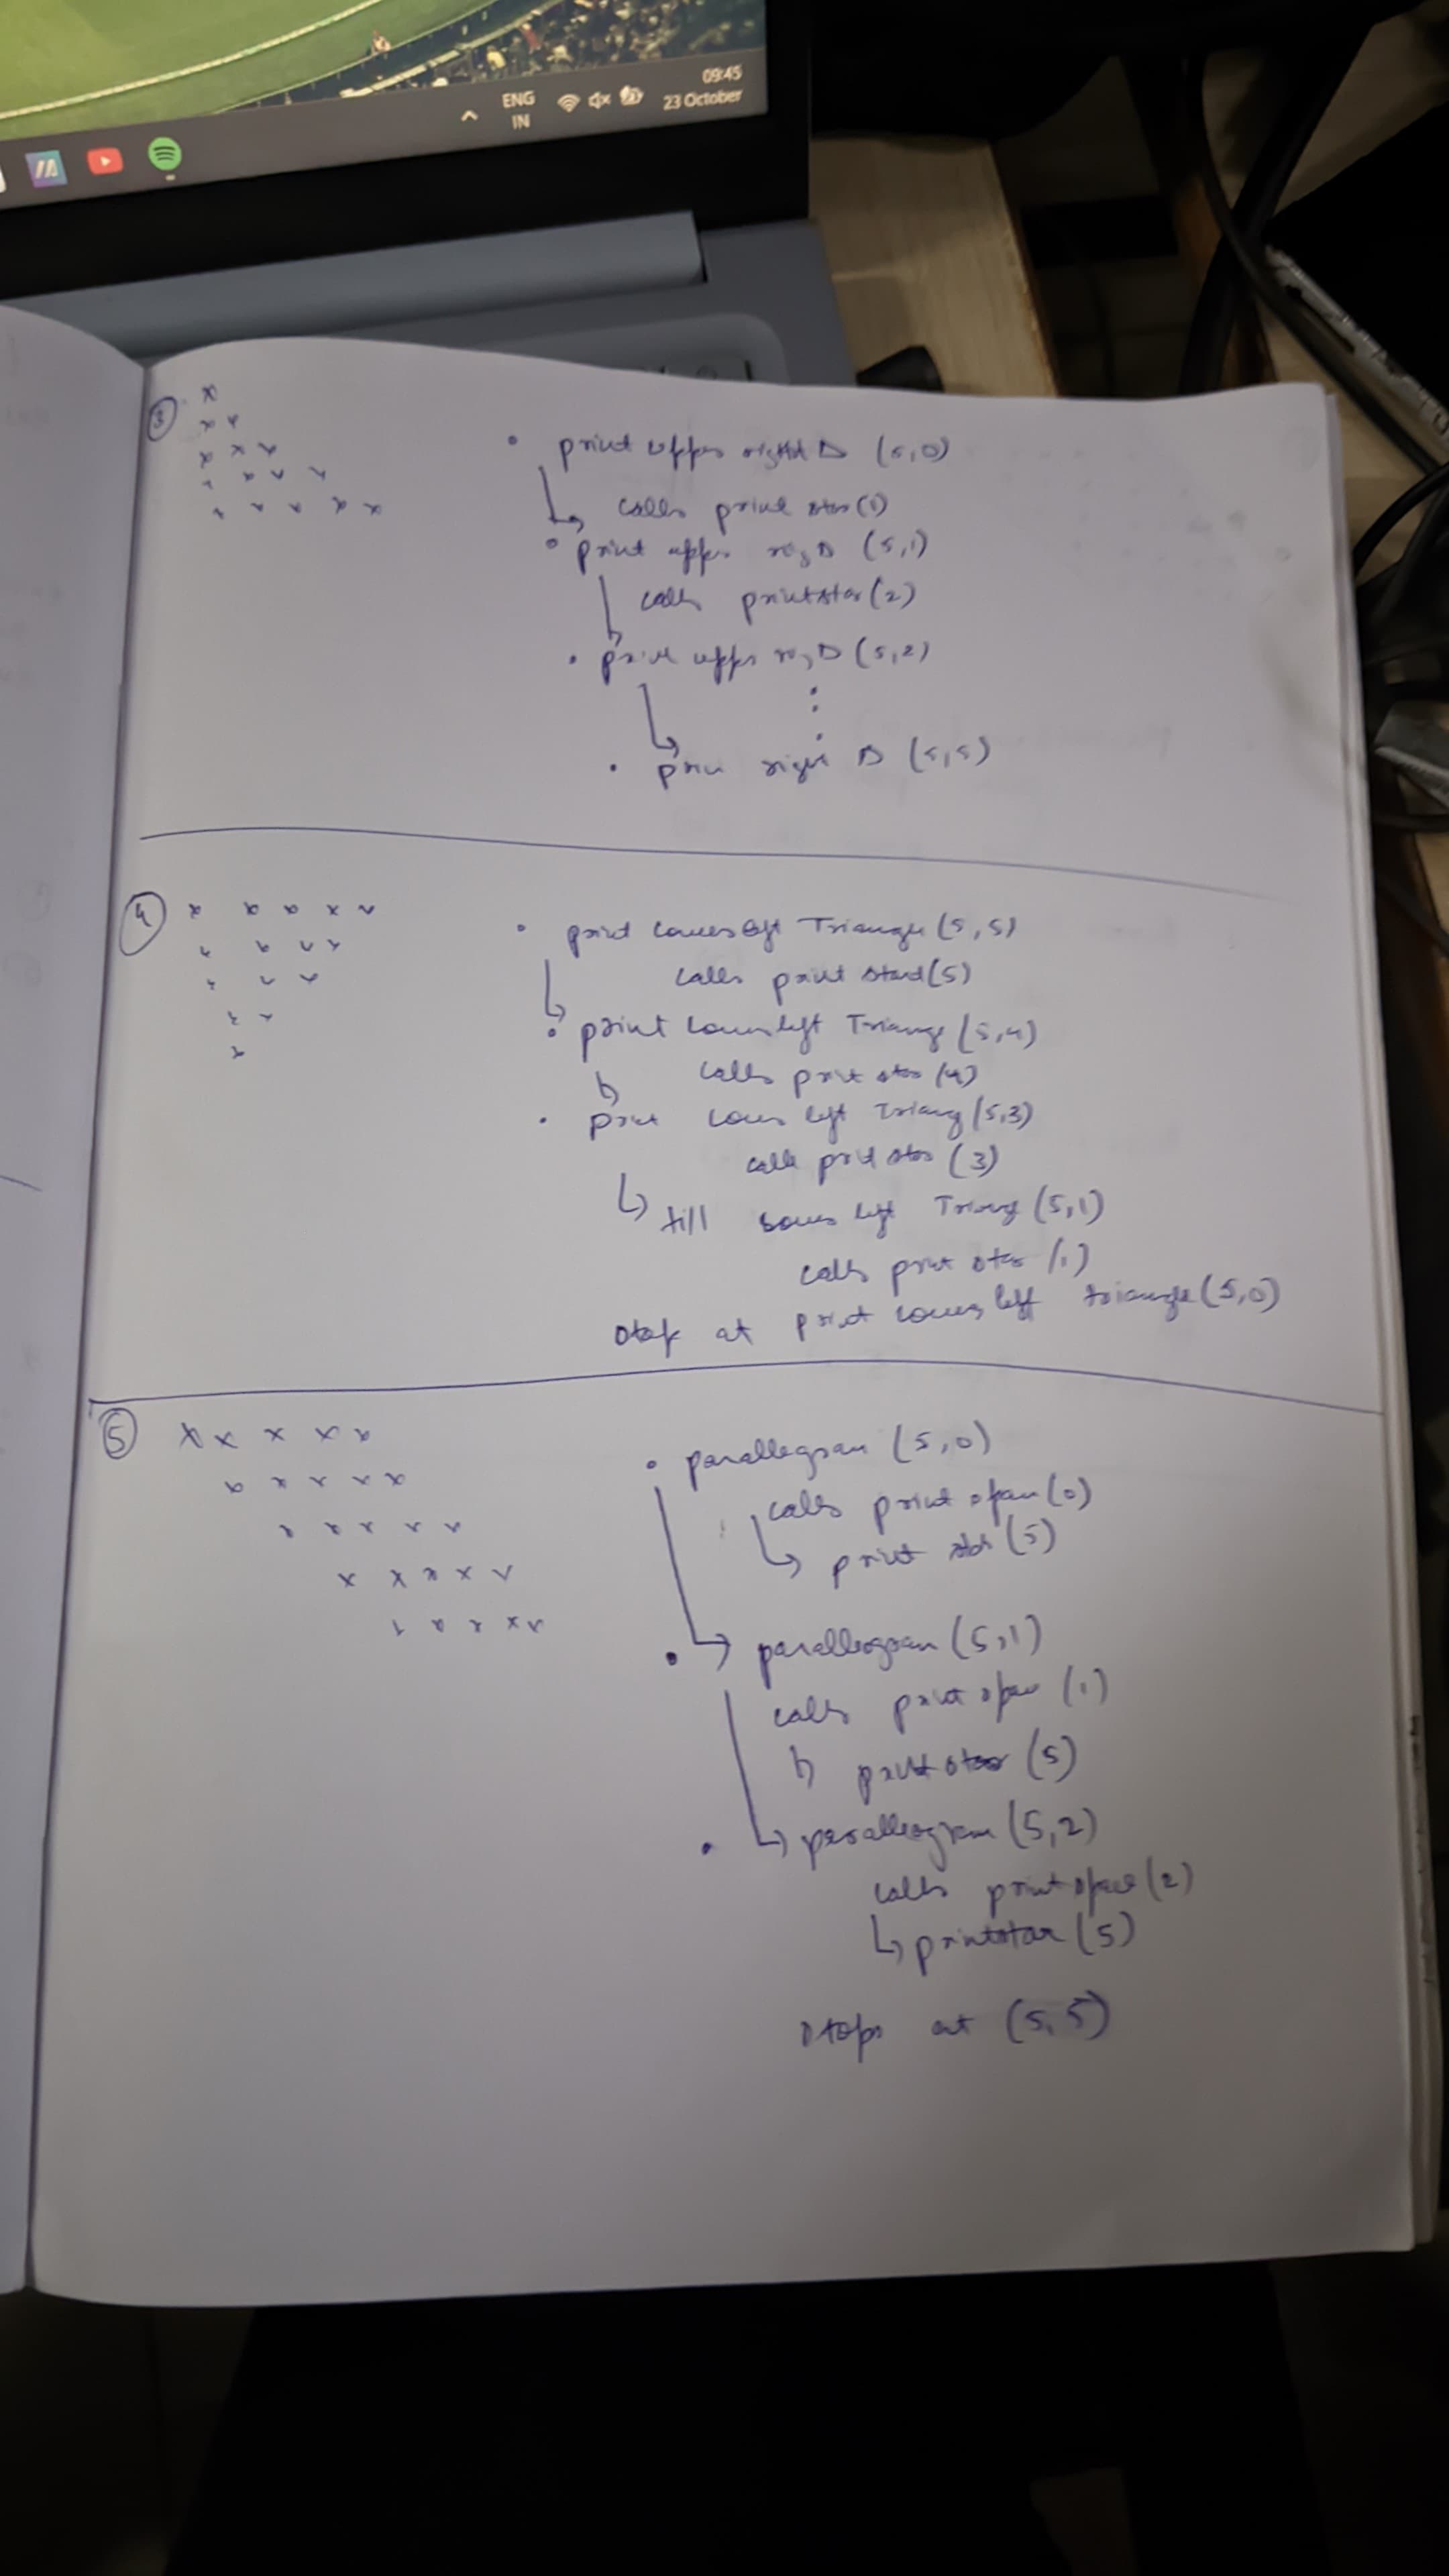 09:45
ENG
IN
23 October
3
x
x x
x x x
x x x x
x x x x x
• print upper right △ (5,0)
calls print star (1)
• print upper rig △ (5,1)
calls printstar (2)
• print upper rig △ (5,2)
⋮
• prin right △ (5,5)
4
x x x x x
x x x x
x x x
x x
x
• print lowerleft Triangle (5,5)
calls print star (5)
• print lowerleft Triang (5,4)
calls print star (4)
• print lower left Triang (5,3)
calls print star (3)
till lower left Triang (5,1)
calls print star (1)
stop at print lower left triangle (5,0)
5
x x x x x
x x x x x
x x x x x
x x x x x
x x x x x
• parallegram (5,0)
calls print space (0)
print star (5)
• parallegram (5,1)
calls print space (1)
print star (5)
• parallegram (5,2)
calls print space (2)
printstar (5)
stops at (5,5)